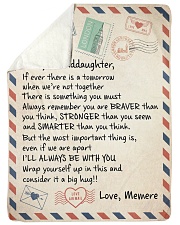 If ever there is a tomorrow
when we're not together
There is something you must
Always remember you are BRAVER than
you think, STRONGER than you seem
and SMARTER than you think.
But the most important thing is,
even if we are apart
I'LL ALWAYS BE WITH YOU
Wrap yourself up in this and
consider it a big hug!!
Love, Memere